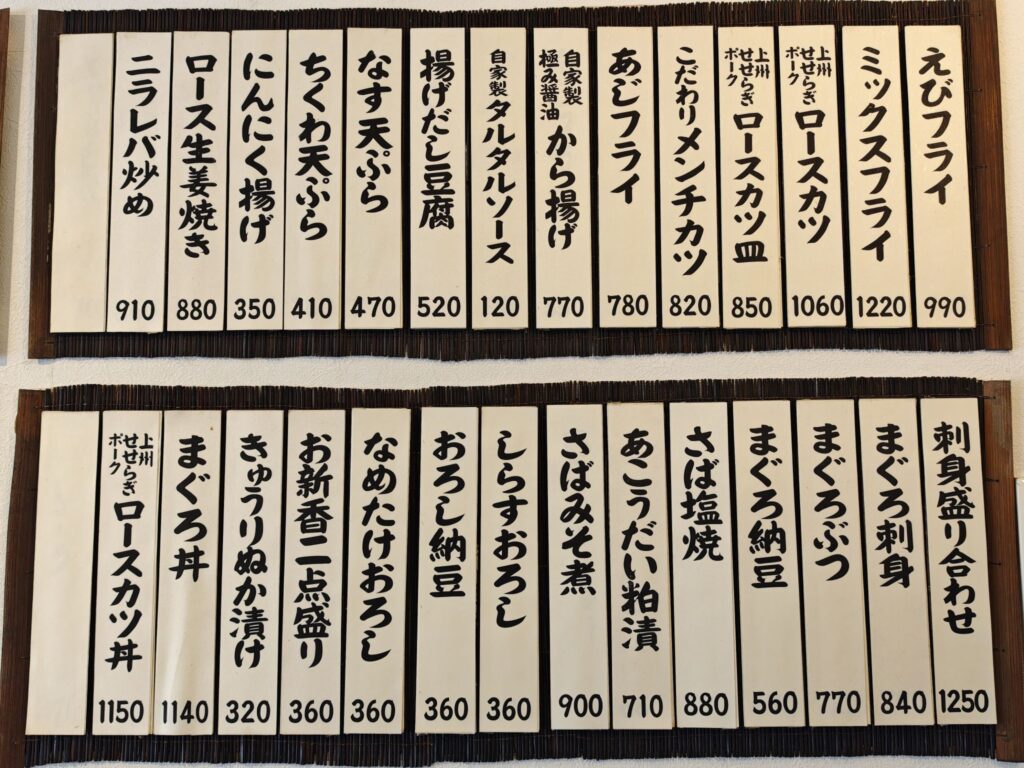 えびフライ
990
ミックスフライ
1220
上州
せせらぎ
ポーク
ロースカツ
1060
上州
せせらぎ
ポーク
ロースカツ皿
850
こだわりメンチカツ
820
あじフライ
780
自家製
極み醤油
から揚げ
770
自家製
タルタルソース
120
揚げだし豆腐
520
なす天ぷら
470
ちくわ天ぷら
410
にんにく揚げ
350
ロース生姜焼き
880
ニラレバ炒め
910
刺身盛り合わせ
1250
まぐろ刺身
840
まぐろぶつ
770
まぐろ納豆
560
さば塩焼
880
あこうだい粕漬
710
さばみそ煮
900
しらすおろし
360
おろし納豆
360
なめたけおろし
360
お新香二点盛り
360
きゅうりぬか漬け
320
まぐろ丼
1140
上州
せせらぎ
ポーク
ロースカツ丼
1150